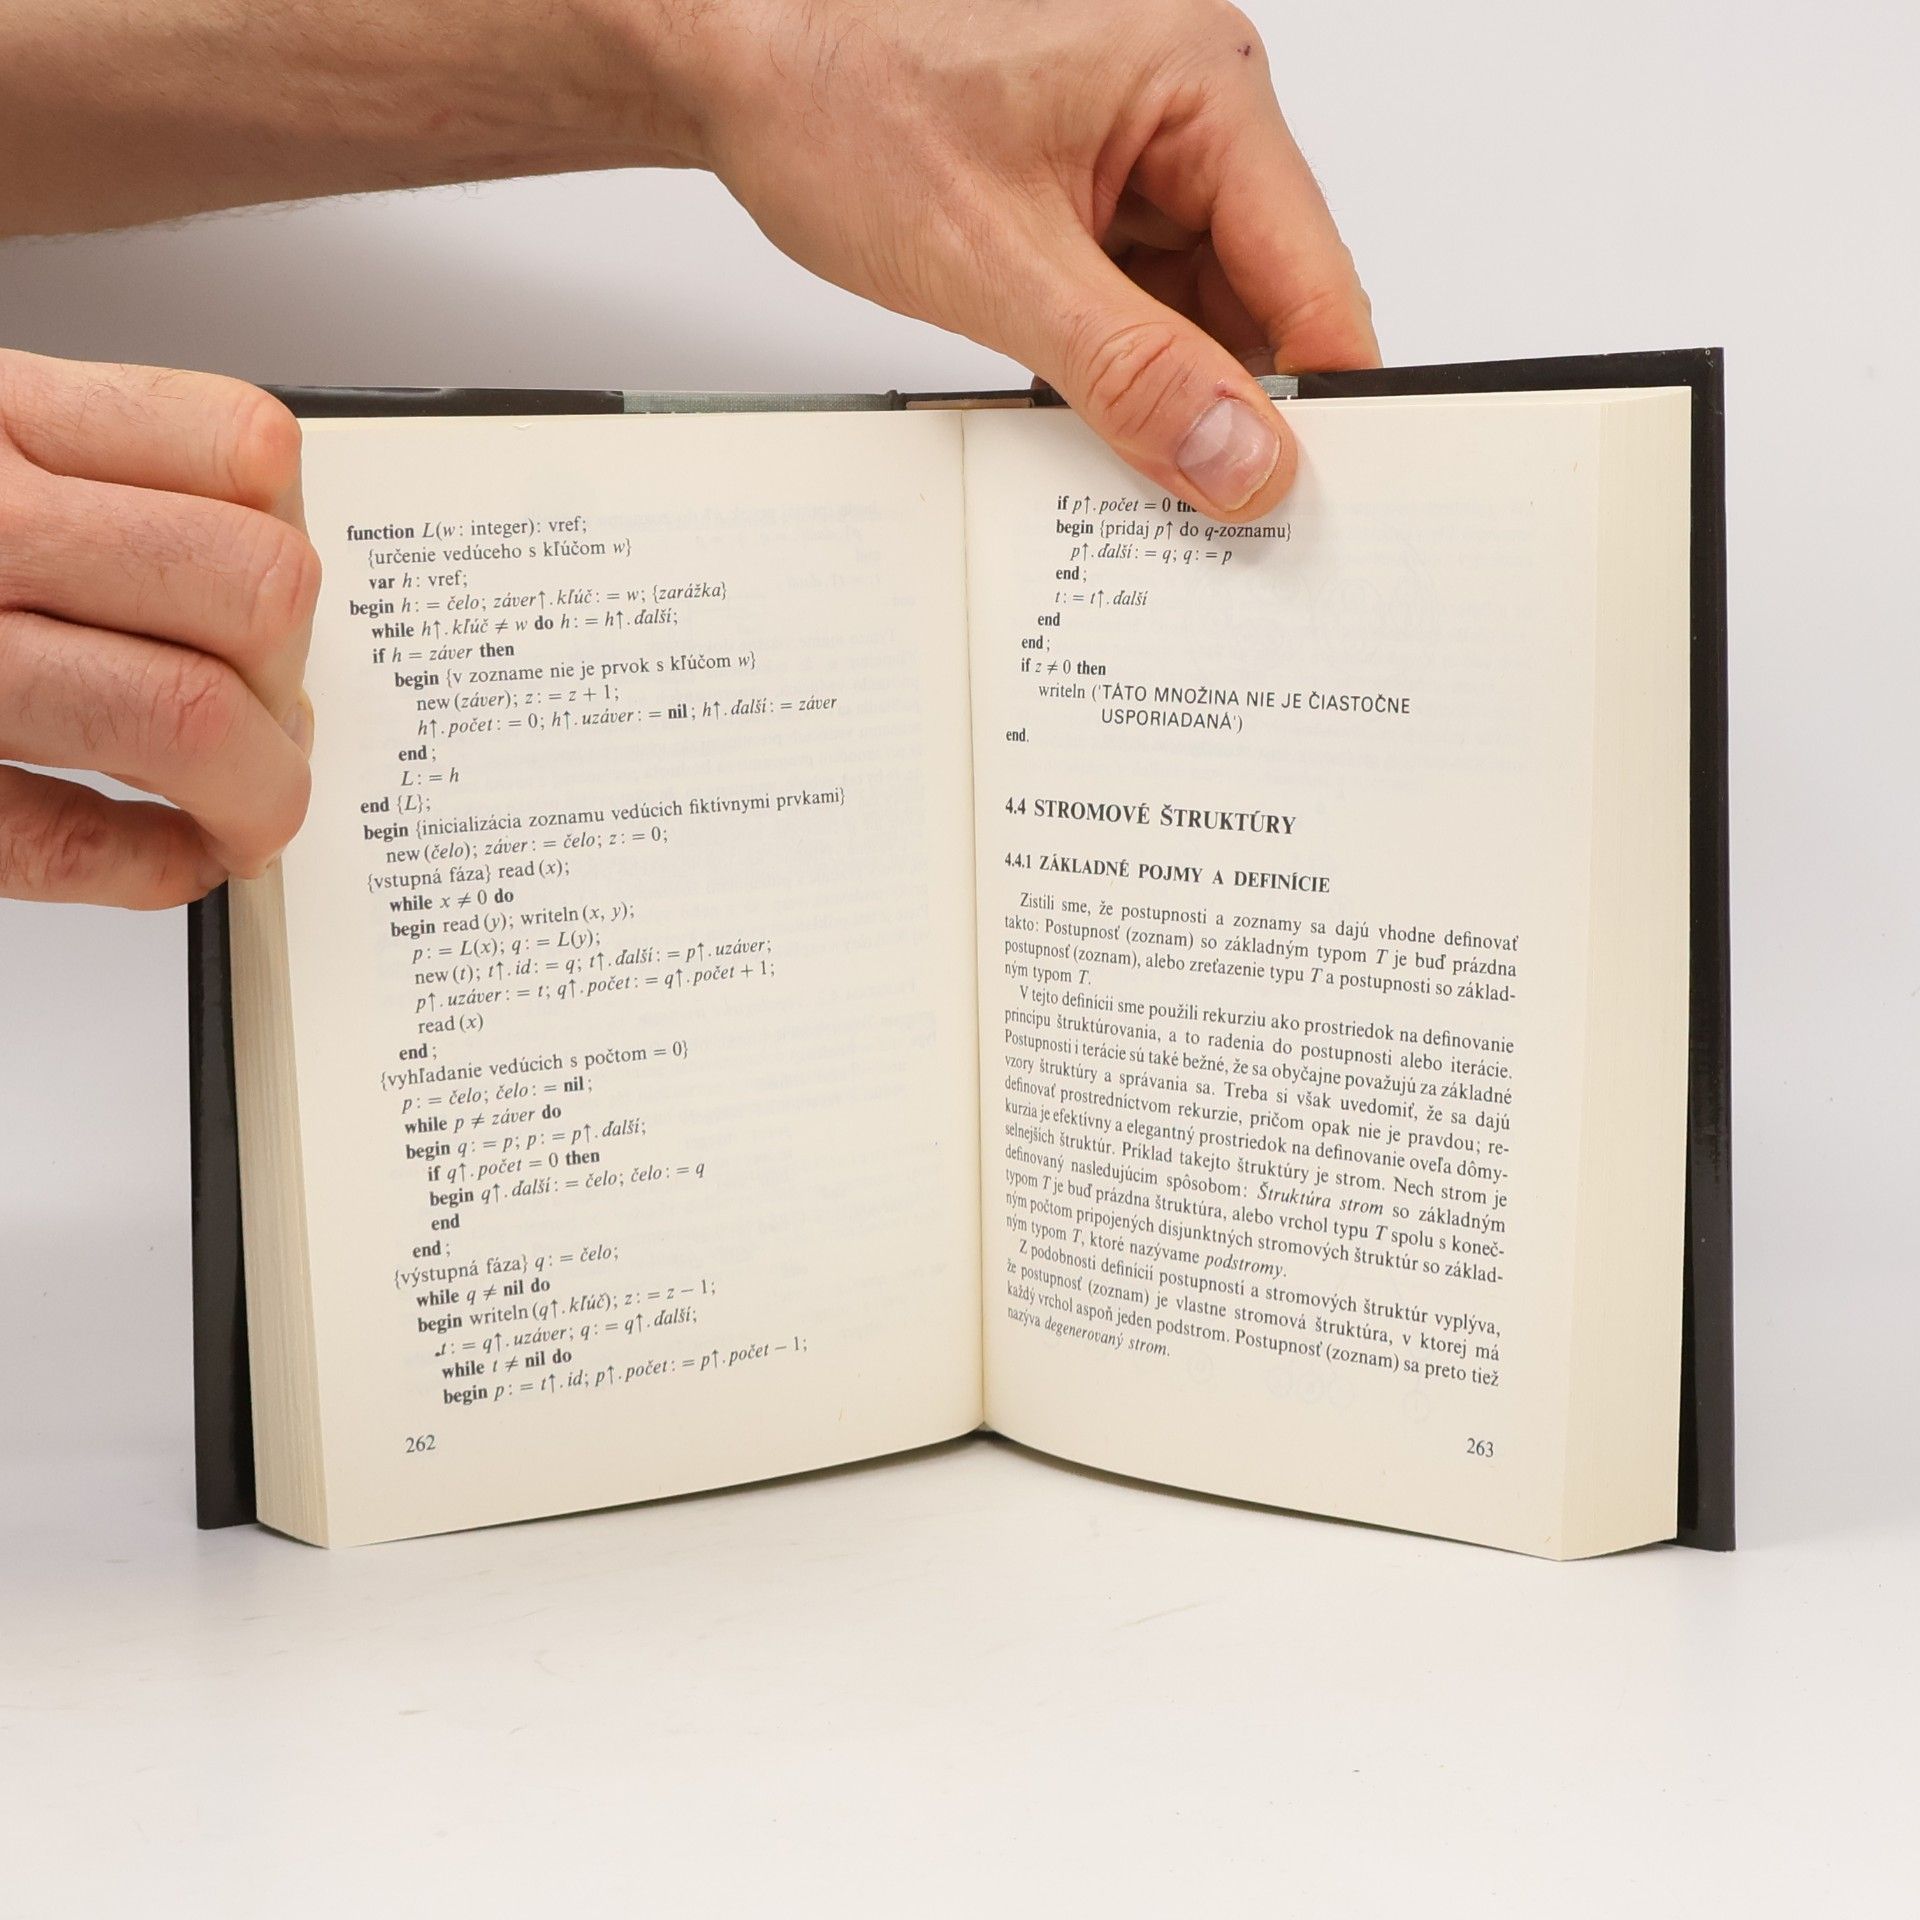 function L(w: integer): vref;
{určenie vedúceho s kľúčom w}
var h: vref;
begin h: = čelo; záver↑.kľúč: = w; {zarážka}
while h↑.kľúč ≠ w do h: = h↑.ďalší;
if h = záver then
begin {v zozname nie je prvok s kľúčom w}
new (záver); z: = z + 1;
h↑.počet: = 0; h↑.uzáver: = nil; h↑.ďalší: = záver
end;
L: = h
end {L};
begin {inicializácia zoznamu vedúcich fiktívnymi prvkami}
new (čelo); záver: = čelo; z: = 0;
{vstupná fáza} read (x);
while x ≠ 0 do
begin read (y); writeln (x, y);
p: = L(x); q: = L(y);
new (t); t↑.id: = q; t↑.ďalší: = p↑.uzáver;
p↑.uzáver: = t; q↑.počet: = q↑.počet + 1;
read (x)
end;
{vyhľadanie vedúcich s počtom = 0}
p: = čelo; čelo: = nil;
while p ≠ záver do
begin q: = p; p: = p↑.ďalší;
if q↑.počet = 0 then
begin q↑.ďalší: = čelo; čelo: = q
end
end;
{výstupná fáza} q: = čelo;
while q ≠ nil do
begin writeln (q↑.kľúč); z: = z − 1;
t: = q↑.uzáver; q: = q↑.ďalší;
while t ≠ nil do
begin p: = t↑.id; p↑.počet: = p↑.počet − 1;
262
if p↑.počet = 0
begin {pridaj p↑ do q-zoznamu}
p↑.ďalší: = q; q: = p
end;
t: = t↑.ďalší
end
end;
if z ≠ 0 then
writeln ('TÁTO MNOŽINA NIE JE ČIASTOČNE
USPORIADANÁ')
end.
4.4 STROMOVÉ ŠTRUKTÚRY
4.4.1 ZÁKLADNÉ POJMY A DEFINÍCIE
Zistili sme, že postupnosti a zoznamy sa dajú vhodne definovať
takto: Postupnosť (zoznam) so základným typom T je buď prázdna
postupnosť (zoznam), alebo zreťazenie typu T a postupnosti so základ-
ným typom T.
V tejto definícii sme použili rekurziu ako prostriedok na definovanie
princípu štruktúrovania, a to radenia do postupnosti alebo iterácie.
Postupnosti i terácie sú také bežné, že sa obyčajne považujú za základné
vzory štruktúry a správania sa. Treba si však uvedomiť, že sa dajú
definovať prostredníctvom rekurzie, pričom opak nie je pravdou; re-
kurzia je efektívny a elegantný prostriedok na definovanie oveľa dômy-
selnejších štruktúr. Príklad takejto štruktúry je strom. Nech strom je
definovaný nasledujúcim spôsobom: Štruktúra strom so základným
typom T je buď prázdna štruktúra, alebo vrchol typu T spolu s koneč-
ným počtom pripojených disjunktných stromových štruktúr so základ-
ným typom T, ktoré nazývame podstromy.
Z podobnosti definícií postupností a stromových štruktúr vyplýva,
že postupnosť (zoznam) je vlastne stromová štruktúra, v ktorej má
každý vrchol aspoň jeden podstrom. Postupnosť (zoznam) sa preto tiež
nazýva degenerovaný strom.
263